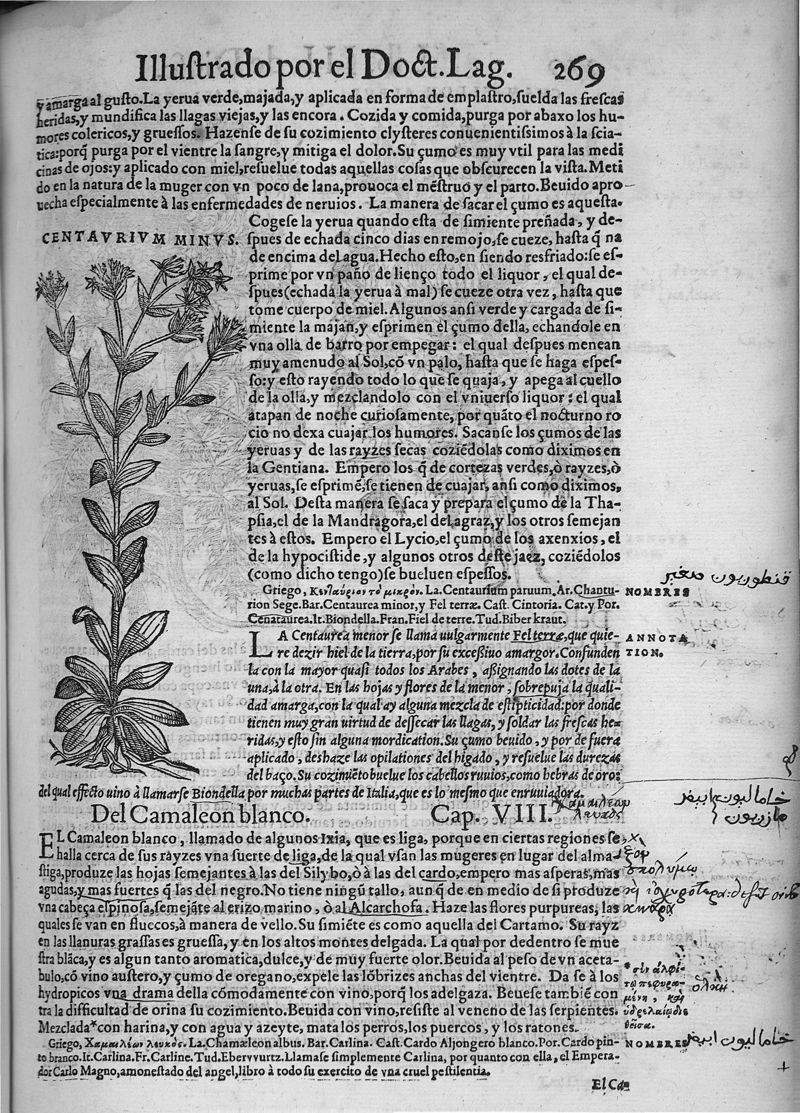 Illuſtrado por el Doct. Lag. 269
y amarga al guſto. La yerua verde, majada, y aplicada en forma de emplaſtro, ſuelda las freſcas
heridas, y mundifica las llagas viejas, y las encora. Cozida y comida, purga por abaxo los hu-
mores colericos, y grueſſos. Hazenſe de ſu cozimiento clyſteres conuenientiſsimos à la ſcia-
tica: porq̃ purga por el vientre la ſangre, y mitiga el dolor. Su çumo es muy vtil para las medi
cinas de ojos: y aplicado con miel, reſuelue todas aquellas coſas que obſcurecen la viſta. Meti
do en la natura de la muger con vn poco de lana, prouoca el mẽſtruo y el parto. Beuido apro-
uecha eſpecialmente à las enfermedades de neruios. La manera de ſacar el çumo es aqueſta.
CENTAVRIVM MINVS.
Cogeſe la yerua quando eſta de ſimiente preñada, y de-
ſpues de echada cinco dias en remojo, ſe cueze, haſta q̃ na
de encima del agua. Hecho eſto, en ſiendo resfriado: ſe eſ-
prime por vn paño de lienço todo el liquor, el qual de-
ſpues (echada la yerua à mal) ſe cueze otra vez, haſta que
tome cuerpo de miel. Algunos anſi verde y cargada de ſi-
miente la majan, y eſprimen el çumo della, echandole en
vna olla de barro por empegar: el qual deſpues menean
muy amenudo al Sol, cõ vn palo, haſta que ſe haga eſpeſ-
ſo: y eſto rayendo todo lo que ſe quaja, y apega al cuello
de la olla, y mezclandolo con el vniuerſo liquor: el qual
atapan de noche curioſamente, por quãto el nocturno ro
cio no dexa cuajar los humores. Sacanſe los çumos de las
yeruas y de las rayzes ſecas coziẽdolas como diximos en
la Gentiana. Empero los q̃ de cortezas verdes, ò rayzes, ò
yeruas, ſe eſprimẽ, ſe tienen de cuajar, anſi como diximos,
al Sol. Deſta manera ſe ſaca y prepara el çumo de la Tha-
pſia, el de la Mandragora, el del agraz, y los otros ſemejan
tes à eſtos. Empero el Lycio, el çumo de los axenxios, el
de la hypociſtide, y algunos otros deſte jaez, coziẽdolos
(como dicho tengo) ſe bueluen eſpeſſos.
Griego, Κενταύριον τὸ μικρόν. La. Centaurium paruum. Ar. Chantu-
NOMBRES
قنطوريون صغير
rion Sege. Bar. Centaurea minor, y Fel terræ. Caſt. Cintoria. Cat. y Por.
Cenataurea. It. Biondella. Fran. Fiel de terre. Tud. Biber kraut.
LA Centaurea menor ſe llama uulgarmente Fel terræ, que quie-
ANNOTA
re dezir hiel de la tierra, por ſu exceßiuo amargor. Confunden
TION.
la con la mayor quaſi todos los Arabes, aßignando las dotes de la
una, à la otra. En las hojas y flores de la menor, ſobrepuja la quali-
dad amarga, con la qual ay alguna mezcla de eſtipticidad: por donde
tienen muy gran uirtud de deſſecar las llagas, y ſoldar las freſcas he-
ridas, y eſto ſin alguna mordication. Su çumo beuido, y por de fuera
aplicado, deshaze las opilationes del higado, y reſuelue las durezas
del baço. Su cozimiẽto buelue los cabellos ruuios, como hebras de oro:
del qual effecto uino à llamarſe Biondella por muchas partes de Italia, que es lo meſmo que enruuiadora.
Del Camaleon blanco. Cap. VIII.
χαμαιλεων
λευκος
خامالیون ابيض
مازريون
EL Camaleon blanco, llamado de algunos Ixia, que es liga, porque en ciertas regiones ſe
halla cerca de ſus rayzes vna ſuerte de liga, de la qual vſan las mugeres en lugar del alma
ſtiga, produze las hojas ſemejantes à las del Silybo, ò à las del cardo, empero mas aſperas, mas
agudas, y mas fuertes q̃ las del negro. No tiene ningũ tallo, aunq̃ de en medio de ſi produze
vna cabeça eſpinoſa, ſemejãte al erizo marino, ò al Alcarchofa. Haze las flores purpureas, las
quales ſe van en fluecos, à manera de vello. Su ſimiẽte es como aquella del Cartamo. Su rayz
en las llanuras graſſas es grueſſa, y en los altos montes delgada. La qual por dedentro ſe mue
ſtra blãca, y es algun tanto aromatica, dulce, y de muy fuerte olor. Beuida al peſo de vn aceta-
bulo, cõ vino auſtero, y çumo de oregano, expele las lõbrizes anchas del vientre. Da ſe à los
hydropicos vna drama della cómodamente con vino, porq̃ los adelgaza. Beueſe tambiẽ con
tra la difficultad de orina ſu cozimiento. Beuida con vino, reſiſte al veneno de las ſerpientes.
Mezclada* con harina, y con agua y azeyte, mata los perros, los puercos, y los ratones.
*σὺν ἀλφί-
ὁλκὴ
Griego, Χαμαιλέων λευκός. La. Chamæleon albus. Bar. Carlina. Caſt. Cardo Aljongero blanco. Por. Cardo pin-
NOMBRES
خامالیون ابيض
to branco. It. Carlina. Fr. Carline. Tud. Ebervvurtz. Llamaſe ſimplemente Carlina, por quanto con ella, el Empera-
dor Carlo Magno, amoneſtado del angel, libro à todo ſu exercito de vna cruel peſtilencia.
El Ca-